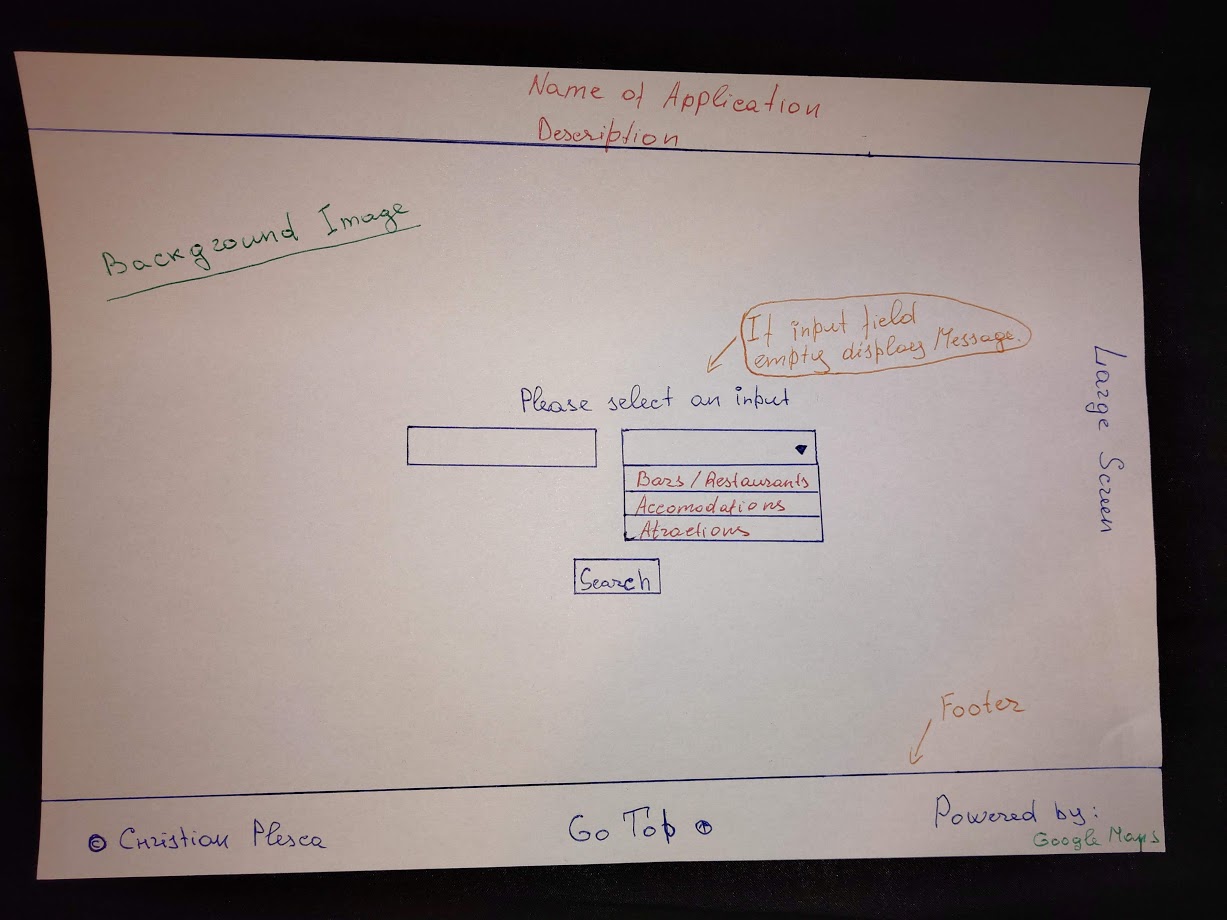 Name of Application
Description
Background Image
If input field
empty display Message.
Large Screen
Please select an input
Bars / Restaurants
Accomodations
Atractions
Search
Footer
© Christian Plesca
Go Top
Powered by:
Google Maps